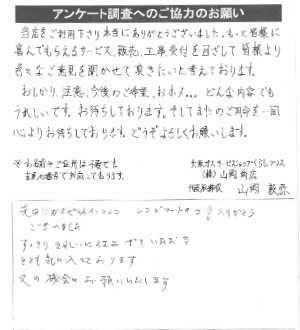 アンケート調査へのご協力のお願い
当店をご利用下さり本当にありがとうございました。もっと皆様に
喜んでもらえるサービス、販売、工事受付を目ざして皆様より
色々なご意見を聞かせて頂きたいと考えております。
おしかり、注意、今後のご希望、おホメ... どんな内容でも
うれしいです。お待ちしております。そしてまたのご用命を一同
心よりお待ちしております。どうぞよろしくお願いします。
※お名前やご住所は不要です。
大阪ガスサービスショップ
(株)山岡商店
山岡
先日はガスビルトインコンロ レンジフードの ありがとう
ございました
すっきりきれいに仕上げていただき
とても気に入っております
又の機会に お願いいたします